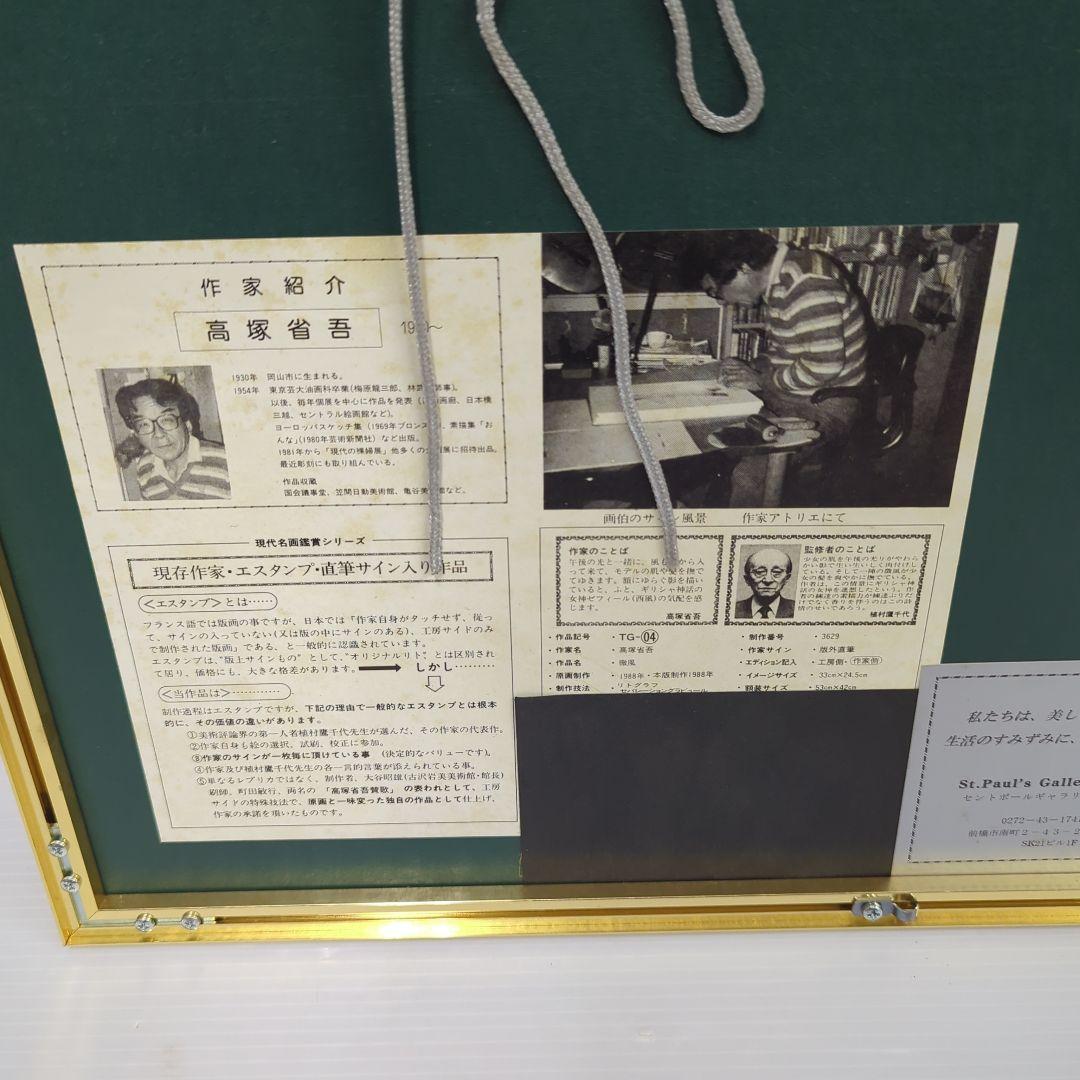 作家紹介
高塚省吾
1930年 岡山市に生まれる。
1954年 東京芸大油画科卒業(梅原龍三郎、林 師事)。
以後、毎年個展を中心に作品を発表( 画廊、日本橋
三越、セントラル絵画館など)。
ヨーロッパスケッチ集(1969年ブロンズ 、素描集「お
んな」(1980年芸術新聞社)など出版。
1981年から「現代の裸婦展」他多くの 展に招待出品。
最近彫刻にも取り組んでいる。
作品収蔵
国会議事堂、笠間日動美術館、亀谷美 など。
現代名画鑑賞シリーズ
現存作家・エスタンプ・直筆サイン入り作品
<エスタンプ>とは……
フランス語では版画の事ですが、日本では「作家自身がタッチせず、従っ
て、サインの入っていない(又は版の中にサインのある)、工房サイドのみ
で制作された版画」である、と一般的に認識されています。
エスタンプは、"版上サインもの"として、"オリジナルリト"とは区別され
て居り、価格にも、大きな格差があります。 しかし………
<当作品は>……………
制作過程はエスタンプですが、下記の理由で一般的なエスタンプとは根本
的に、その価値の違いがあります。
①美術評論界の第一人者植村鷹千代先生が選んだ、その作家の代表作。
②作家自身も絵の選択、試刷、校正に参加。
③作家のサインが一枚毎に頂けている事 (決定的なバリューです)。
④作家及び植村鷹千代先生の各一言的言葉が添えられている事。
⑤単なるレプリカではなく、制作者、大谷昭雄(古沢岩美美術館・館長)
刷師、町田敏行、両名の「高塚省吾賛歌」の表われとして、工房
サイドの特殊技法で、原画と一味変った独自の作品として仕上げ、
作家の承諾を頂いたものです。
画伯のサイン風景 作家アトリエにて
作家のことば
午後の光と一緒に、風も から入
って来て、モデルの肌や髪を撫で
てゆきます。顔にゆらぐ影を描い
ていると、ふと、ギリシャ神話の
女神ゼフィール(西風)の気配を感
じます。
高塚省吾
監修者のことば
少女の肌を午後の光りがやわら
かい影で生い生いしく肉付けし
ている。そして一陣の微風が少
女の髪を爽やかに撫でている。
作者は、この情景にギリシャ神
話の女神を連想したという。作
者の練達の素描力が練達ぶりだ
けでなく香りを伴うのはこの詩
情のせいであろう。
植村鷹千代
・作品記号 ・TG-04
・作家名 ・高塚省吾
・作品名 ・微風
・原画制作 ・1988年・本版制作1988年
・制作技法 ・リトグラフ
セパレーショングラビュール
・制作番号 ・3629
・作家サイン ・版外直筆
・エディション記入 ・工房側・作家側
・イメージサイズ ・33cm×24.5cm
・額装サイズ ・53cm×42cm
私たちは、美し
生活のすみずみに、
St.Paul's Galle
セントポールギャラリ
0272-43-174
前橋市南町2-43-2
SK21ビル1F